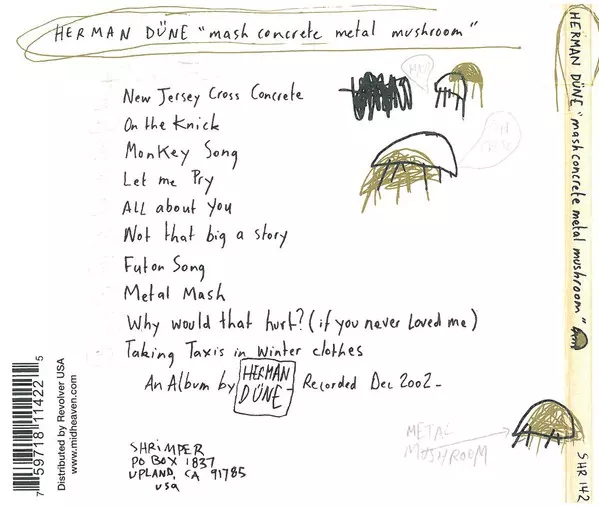 HERMAN DÜNE "mash concrete metal mushroom"
New Jersey Cross Concrete
On the Knick
Monkey Song
Let me Pry
All about you
Not that big a story
Futon Song
Metal Mash
Why would that hurt? (if you never loved me)
Taking Taxis in winter clothes
An Album by HERMAN DÜNE - Recorded Dec 2002-
SHRIMPER
PO BOX 1837
UPLAND, CA 91785
USA
METAL
MUSHROOM
7 59718 11422 5
Distributed by Revolver USA
www.midheaven.com
HERMAN DÜNE "mash concrete metal mushroom"
SHR 142